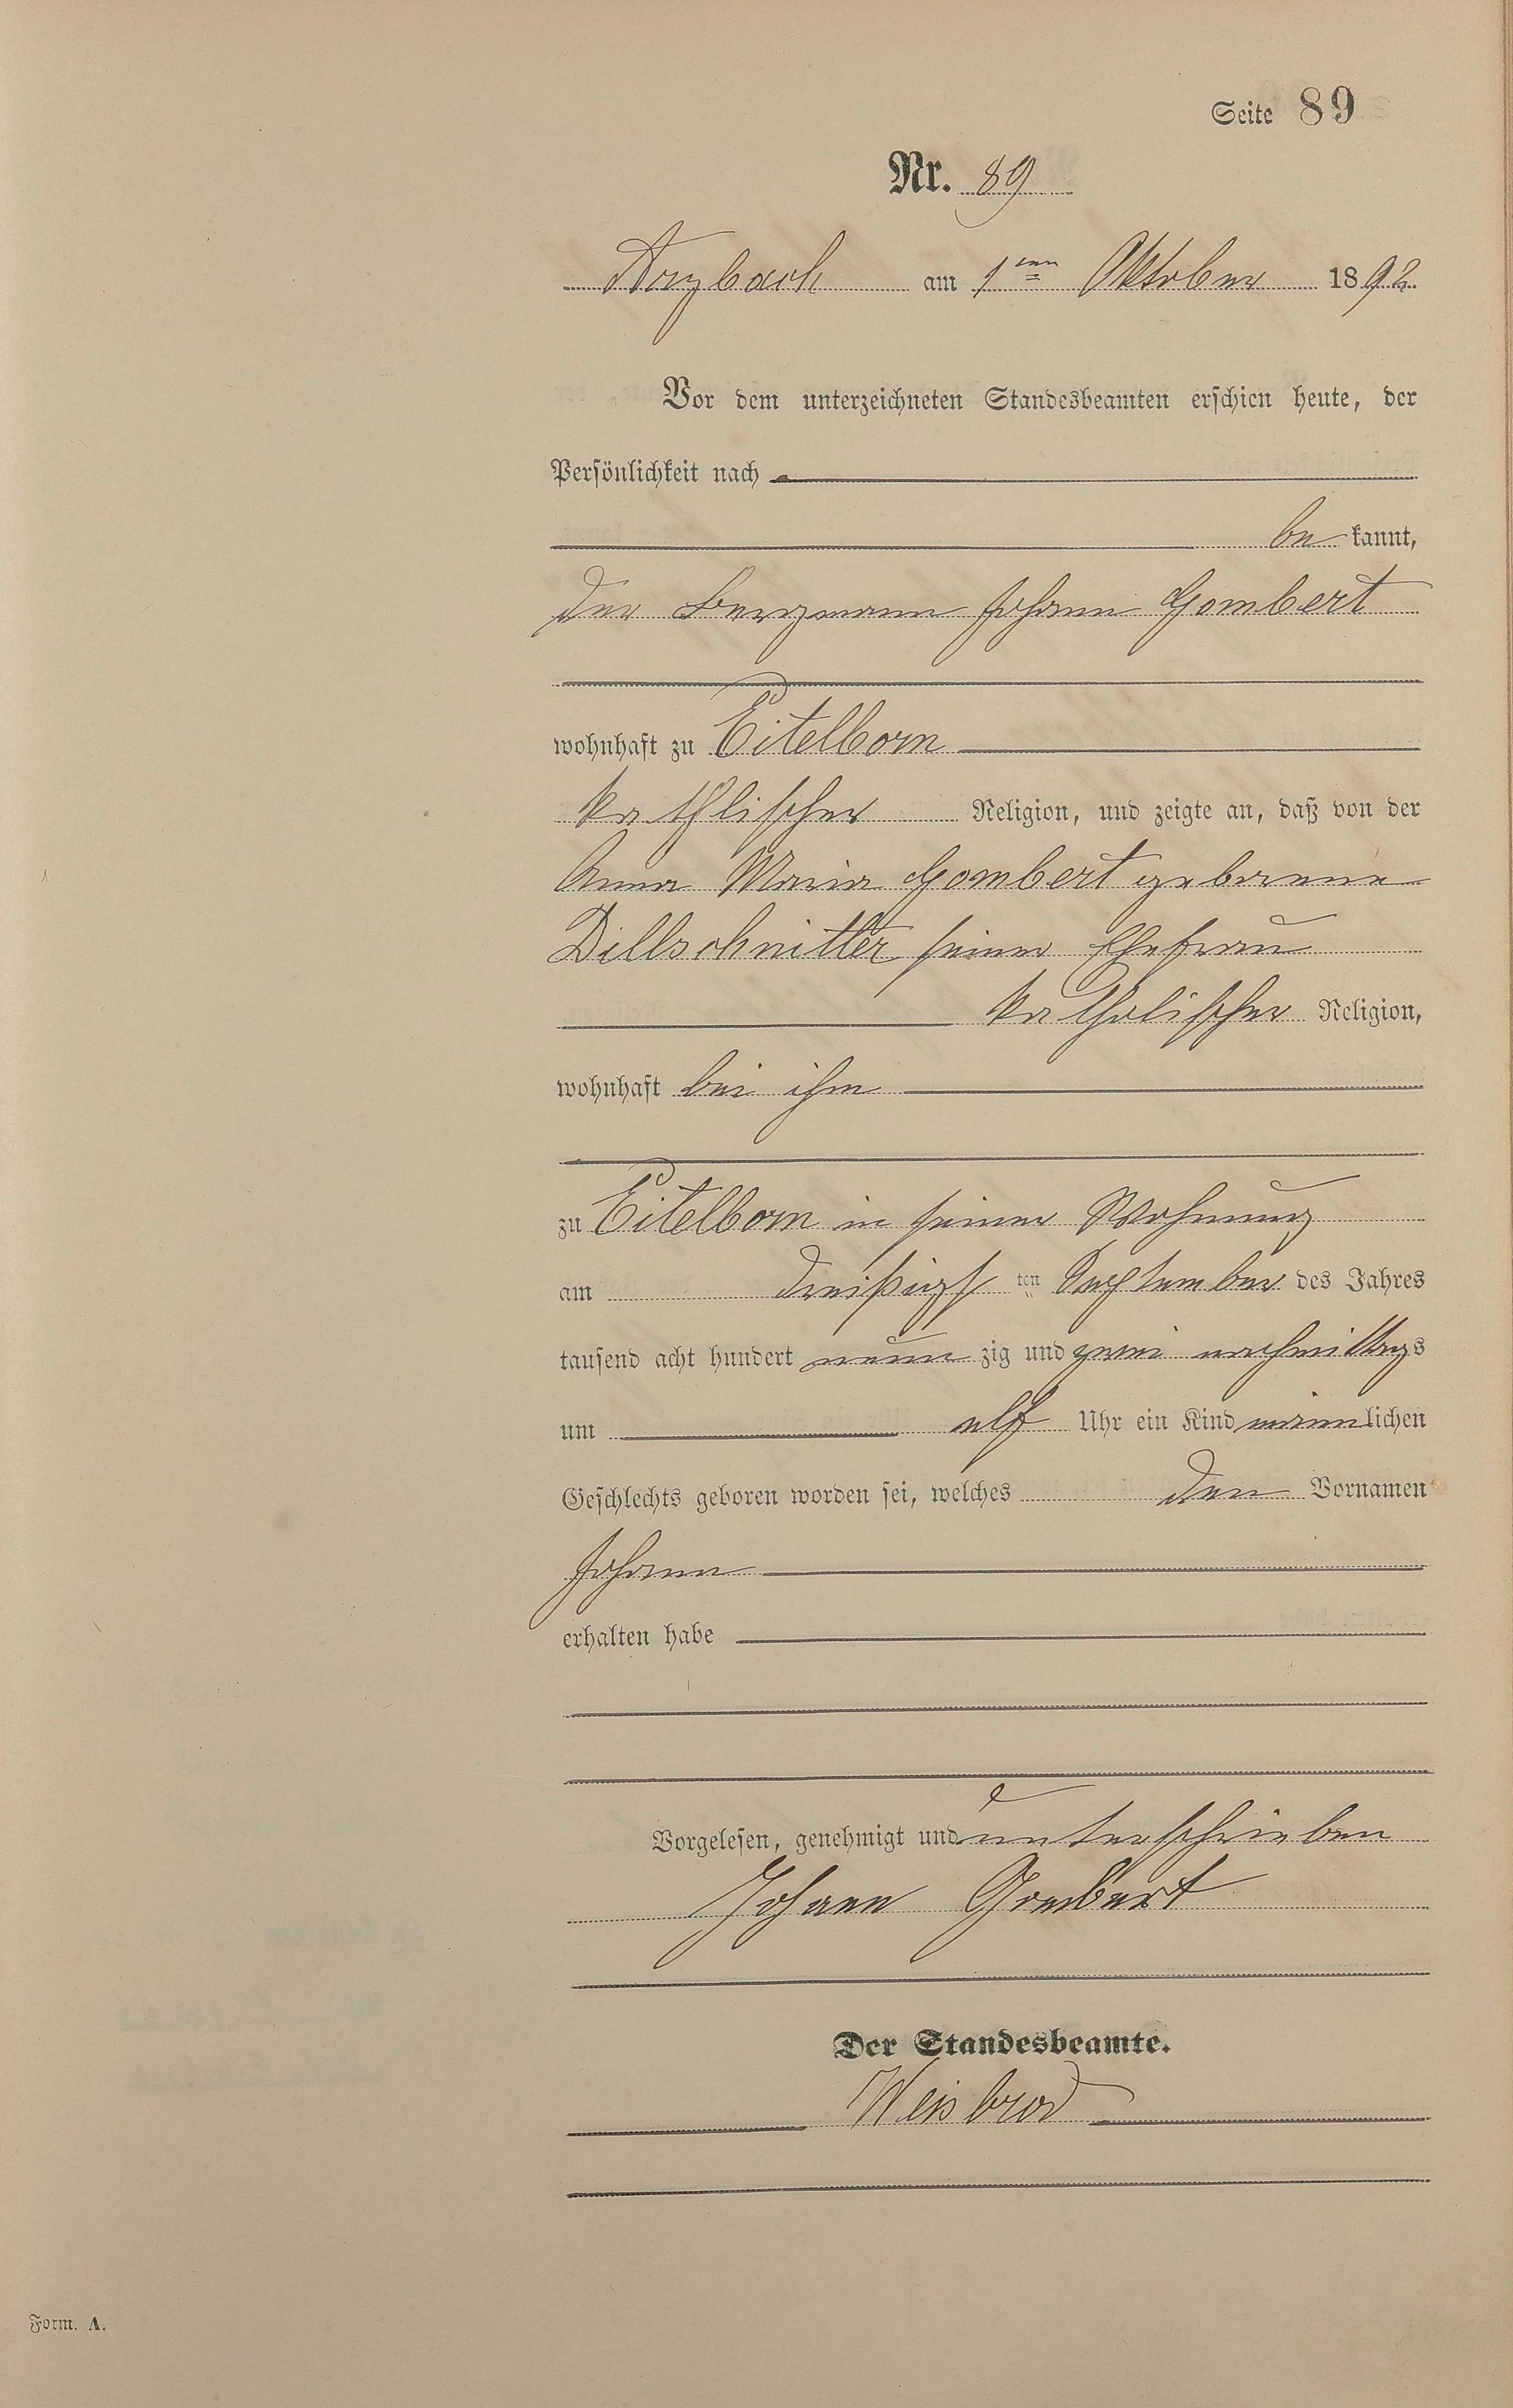 Seite 89
Nr. 89
Arzbach am 1ten Oktober 1892
Vor dem unterzeichneten Standesbeamten erschien heute, der
Persönlichkeit nach
be kannt,
der Bergmann Johann Gombert
wohnhaft zu Eitelborn
kathlischer Religion, und zeigte an, daß von der
Anna Maria Gombert geborene
Dillschnitter seiner Ehefrau
katholischer Religion,
wohnhaft bei ihm
zu Eitelborn in seiner Wohnung
am dreißigst ten September des Jahres
tausend acht hundert neun zig und zwei nachmittags
um elf Uhr ein Kind männlichen
Geschlechts geboren worden sei, welches den Vornamen
Johann
erhalten habe
Vorgelesen, genehmigt und unterschrieben
Johann Gombert
Der Standesbeamte.
Weisbrod
Form. A.